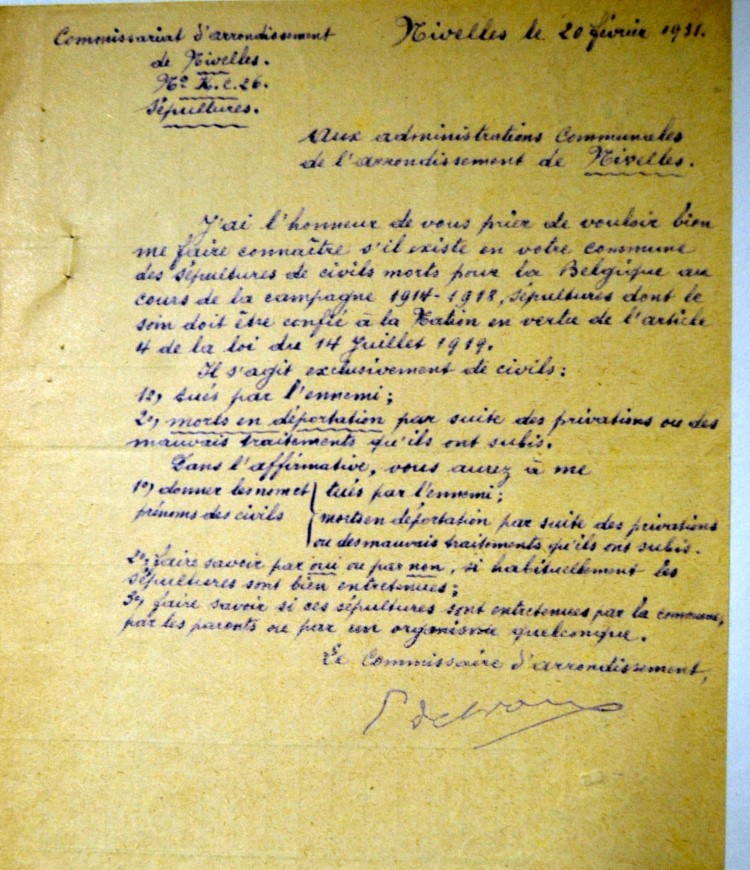 Commissariat d'arrondissement
de Nivelles.
Nº K.C.26.
Sépultures.
Nivelles le 20 février 1931.
Aux administrations Communales
de l'arrondissement de Nivelles.
J'ai l'honneur de vous prier de vouloir bien
me faire connaître s'il existe en votre commune
des sépultures de civils morts pour la Belgique au
cours de la campagne 1914-1918, sépultures dont le
soin doit être confié à la Nation en vertu de l'article
4 de la loi du 14 Juillet 1919.
Il s'agit exclusivement de civils:
1º) tués par l'ennemi;
2º) morts en déportation par suite des privations ou des
mauvais traitements qu'ils ont subis.
Dans l'affirmative, vous aurez à me
1º) donner les nom et { tués par l'ennemi;
prénoms des civils { morts en déportation par suite des privations
ou des mauvais traitements qu'ils ont subis.
2º) faire savoir par oui ou par non, si habituellement les
sépultures sont bien entretenues;
3º) faire savoir si ces sépultures sont entretenues par la commune,
par les parents ou par un organisme quelconque.
Le Commissaire d'arrondissement,